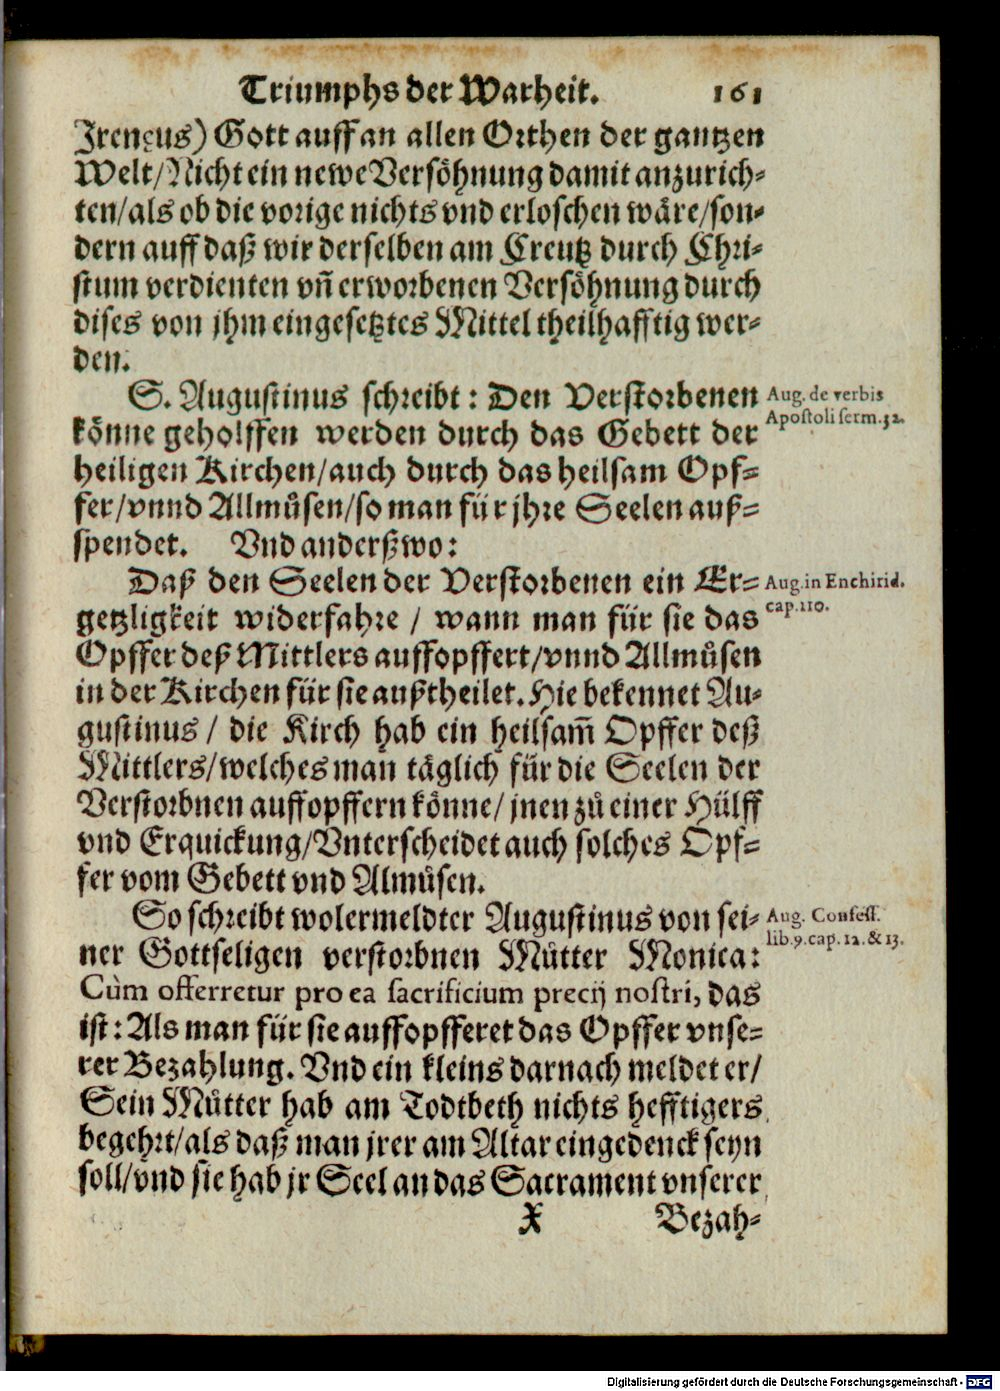 Triumphs der Warheit. 161
Jreneus) Gott auff an allen Orthen der gantzen
Welt/Nicht ein newe Versöhnung damit anzurich-
ten/als ob die vorige nichts vnd erloschen wäre/son-
dern auff daß wir derselben am Creutz durch Chri-
stum verdienten vñ erworbenen Versöhnung durch
dises von jhm eingesetztes Mittel theilhafftig wer-
den.
S. Augustinus schreibt: Den Verstorbenen
Aug. de verbis
könne geholffen werden durch das Gebett der
Apostoli serm. 32.
heiligen Kirchen/auch durch das heilsam Opf-
fer/vnnd Allmůsen/so man für jhre Seelen auß-
spendet. Vnd anderßwo:
Daß den Seelen der Verstorbenen ein Er-
Aug. in Enchirid.
getzligkeit widerfahre / wann man für sie das
cap. 110.
Opffer deß Mittlers auffopffert/vnnd Allmůsen
in der Kirchen für sie außtheilet. Hie bekennet Au-
gustinus / die Kirch hab ein heilsam̃ Opffer deß
Mittlers/welches man täglich für die Seelen der
Verstorbnen auffopffern könne/ jnen zů einer Hülff
vnd Erquickung/Vnterscheidet auch solches Opf-
fer vom Gebett vnd Almůsen.
So schreibt wolermeldter Augustinus von sei-
Aug. Confess.
ner Gottseligen verstorbnen Můtter Monica:
lib. 9. cap. 12. & 13.
Cùm offerretur pro ea sacrificium precij nostri, das
ist: Als man für sie auffopfferet das Opffer vnse-
rer Bezahlung. Vnd ein kleins darnach meldet er/
Sein Můtter hab am Todtbeth nichts hefftigers
begehrt/als daß man jrer am Altar eingedenck seyn
soll/vnd sie hab jr Seel an das Sacrament vnserer
X Bezah-
Digitalisierung gefördert durch die Deutsche Forschungsgemeinschaft - DFG